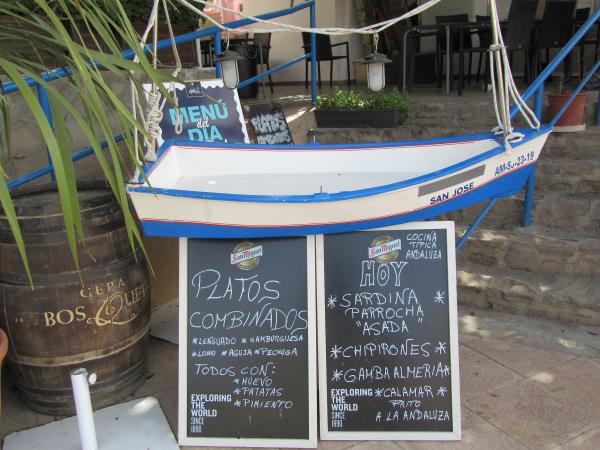 MENÚ
del
DÍA
PLATOS
SAN JOSE
AM-53-23-19
CEPA
BOSQUET
San Miguel
PLATOS
COMBINADOS
*LENGUADO *HAMBURGUESA
*LOMO *AGUJA *PECHUGA
TODOS CON:
*HUEVO
*PATATAS
*PIMIENTO
EXPLORING
THE
WORLD
SINCE
1890
San Miguel
COCINA
TIPICA
ANDALUZA
HOY
*SARDINA*
PARROCHA
"ASADA"
*CHIPIRONES*
*GAMBA ALMERIA*
*CALAMAR*
FRITO
A LA ANDALUZA
EXPLORING
THE
WORLD
SINCE
1890